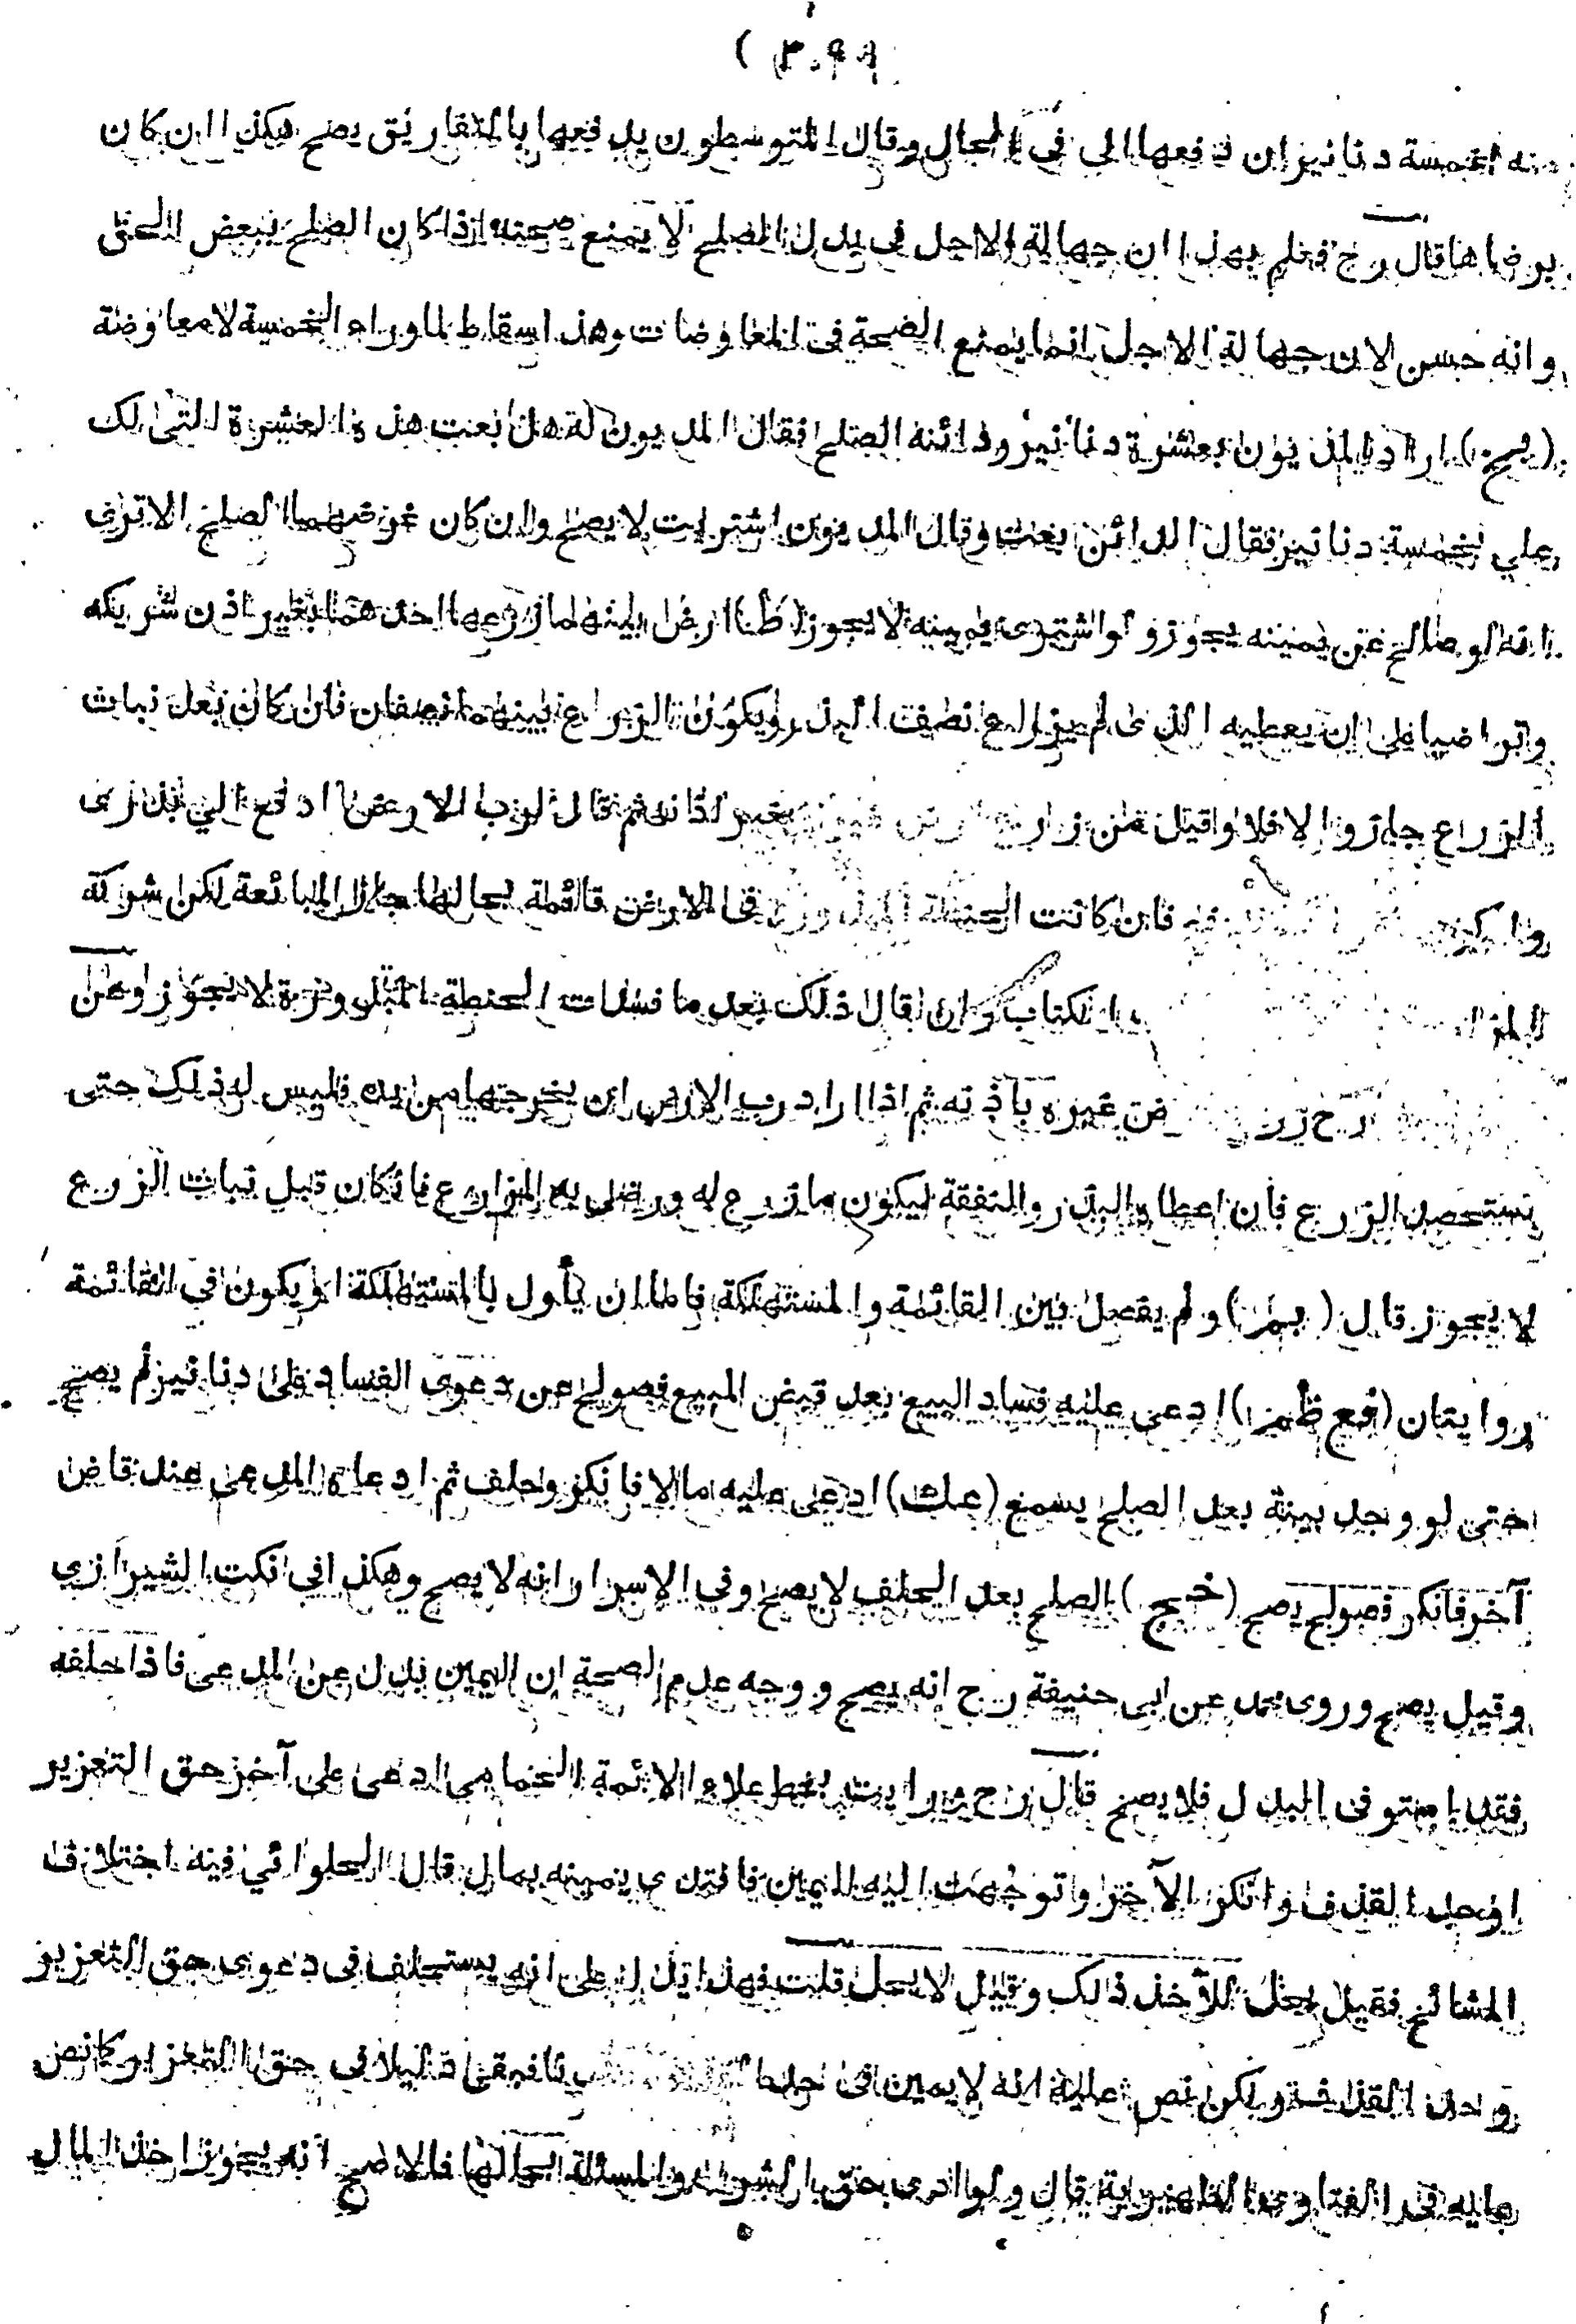 ( ٣٠٩ )
منه الخمسة دنانير ان تدفعها الي في الحال وقال المتوسطون يدفعها بالتفاريق يصح هكذا ان كان
برضاها قال رح فعلم بهذا ان جهالة الاجل في بدل الصلح لا يمنع صحته اذا كان الصلح ببعض الحق
وانه حسن لان جهالة الاجل انما يمنع الصحة في المعاوضات وهذا اسقاط لما وراء الخمسة لا معاوضة
(بخ) اراد المديون بعشرة دنانير ودائنه الصلح فقال المديون له هل بعت هذه العشرة التي لك
علي بخمسة دنانير فقال الدائن بعت وقال المديون اشتريت لا يصح وان كان غرضهما الصلح الا ترى
انه لو صالح عن يمينه يجوز ولو اشترى يمينه لا يجوز (ظت) ارض بينهما زرعها احدهما بغير اذن شريكه
وتراضيا على ان يعطيه الذي لم يزارع نصف البذر ويكون الزراع بينهما نصفان فان كان بعد نبات
الزراع جاز والا فلا وقيل من زارع ارض غيره بغير اذنه ثم قال لرب الارض ادفع الي بذري
فان كانت الحنطة المبذورة في الارض قائمة بحالها جاز المبائعة لكن شركة
الكتاب وان قال ذلك بعد ما فسدت الحنطة المبذورة لا يجوز وعن
رح غيره باذنه ثم اذا اراد رب الارض ان يخرجها من يده فليس له ذلك حتى
يستحصد الزرع فان اعطاه البذر والنفقة ليكون ما زرع له ورضي به المزارع فان كان قبل نبات الزرع
لا يجوز قال (بم) ولم يفصل بين القائمة والمستهلكة فاما ان يأول بالمستهلكة او يكون في القائمة
روايتان (فع ظم) ادعى عليه فساد البيع بعد قبض المبيع فصولح عن دعوى الفساد على دنانير لم يصح
حتى لو وجد بينة بعد الصلح يسمع (عك) ادعى عليه مالا فانكر وحلف ثم ادعاه المدعي عند قاض
آخر فانكر فصولح يصح (خج) الصلح بعد الحلف لا يصح وفي الاسرار انه لا يصح وهكذا في نكت الشيرازي
وقيل يصح وروى محمد عن ابي حنيفة رح انه يصح ووجه عدم الصحة ان اليمين بدل عن المدعى فاذا حلفه
فقد استوفى البدل فلا يصح قال رح ورايت بخط علاء الائمة الخمامي ادعى على آخر حق التعزير
او حد القذف وانكر الآخر وتوجهت اليه اليمين فافتدى يمينه بمال قال الحلوائي فيه اختلاف
المشائخ فقيل يحل للآخذ ذالك وقيل لا يحل قلت فهذا يدل على انه يستحلف في دعوى حق التعزير
وحد القذف ولكن نص عليه انه لا يمين في حد فيبقى دليلا في حق التعزير كما نص
عليه في الفتاوى الظهيرية قال ولو ادعى بحق الشرب والمسئلة بحالها فالاصح انه يجوز اخذ المال